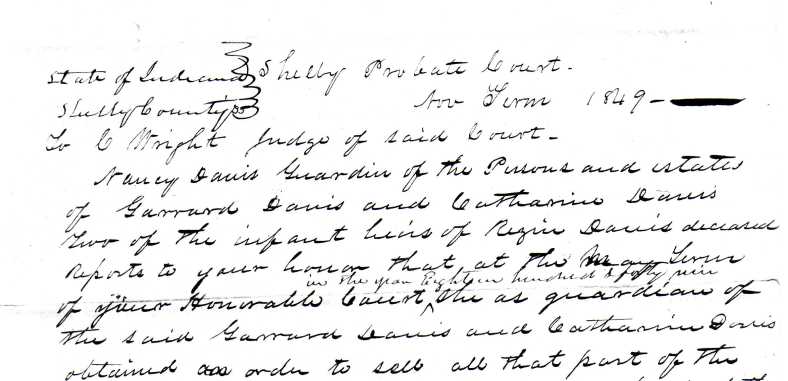 State of Indiana Shelby Probate Court.
Shelby County ss Nov Term 1849
To C Wright Judge of said Court.
Nancy Davis Guardin of the Persons and estates
of Garrard Davis and Catharine Davis
Two of the infant heirs of Rezin Davis deceased
Reports to your honor that at the May Term
in the year Eighteen hundred & forty nine
of your Honorable Court she as guardian of
the said Garrard Davis and Catharine Davis
obtained an order to sell all that part of the